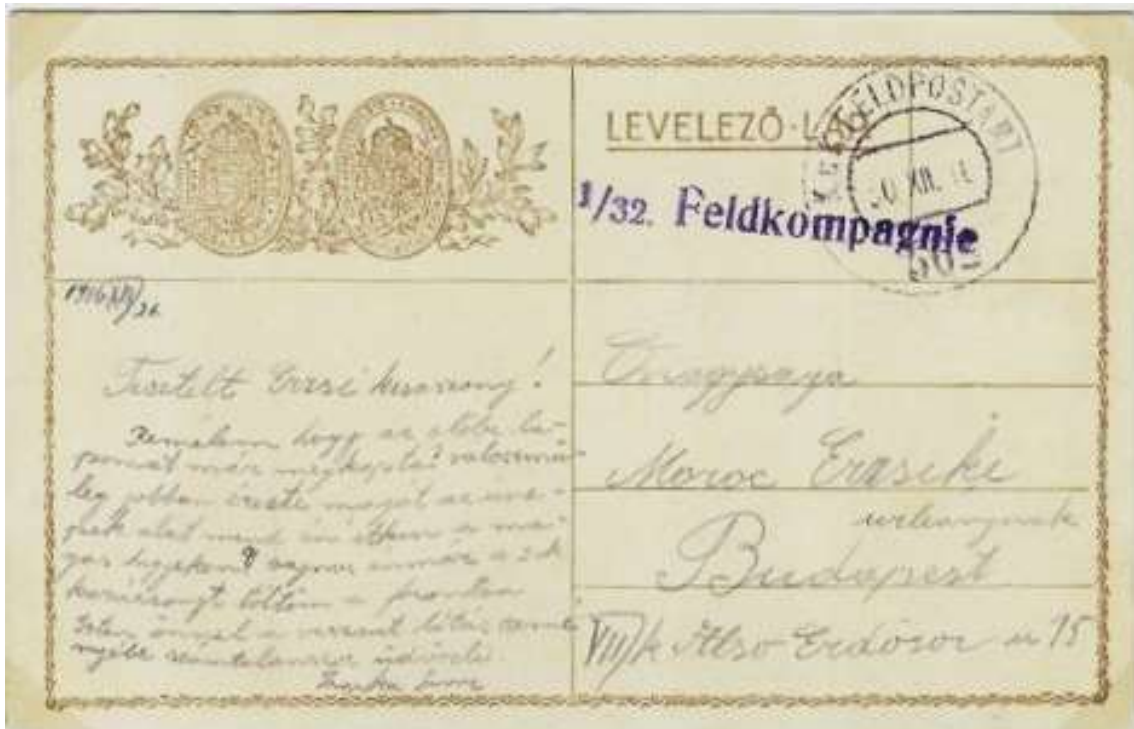 LEVELEZŐ-L
K.u.K. FELDPOSTAMT
XII.
1/32. Feldkompagnie
1916 XII/26
Tisztelt Erzsi kisasszony!
Remélem hogy az előbi la-
pomat már megkapta? valoszinü-
leg jobban érezte magát az ünne-
pek alat mind én itten a ma-
gas hegyeken? vagyon immár a 2-k
karácsonyt töltöm a fronton
Isten önnyel a viszont látás remé-
nyébe számtalanszor üdvözli
Imre
Őnagysága
Moroc Erzsike
urleánynak
Budapest
VII/k Alsó Erdősor u 15